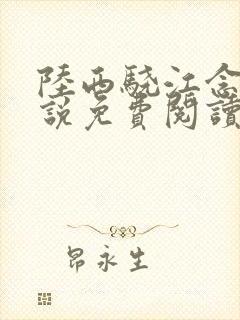 陸西驍江念
說免費閱讀
昂永生